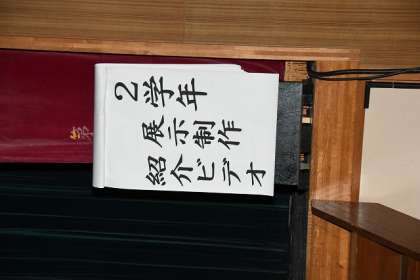 2学年
展示制作
紹介ビデオ